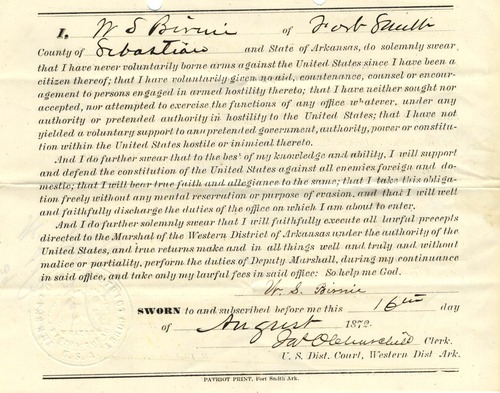 I, W S Birnie of Fort Smith
County of Sebastian and State of Arkansas, do solemnly swear,
that I have never voluntarily borne arms against the United States since I have been a
citizen thereof; that I have voluntarily given no aid, countenance, counsel or encour-
agement to persons engaged in armed hostility thereto; that I have neither sought nor
accepted, nor attempted to exercise the functions of any office whatever, under any
authority or pretended authority in hostility to the United States; that I have not
yielded a voluntary support to any pretended government, authority, power or constitu-
tion within the United States hostile or inimical thereto.
And I do further swear that to the best of my knowledge and ability, I will support
and defend the constitution of the United States against all enemies foreign and do-
mestic; that I will bear true faith and allegiance to the same; that I take this obliga-
tion freely without any mental reservation or purpose of evasion, and that I will well
and faithfully discharge the duties of the office on which I am about to enter.
And I do further solemnly swear that I will faithfully execute all lawful precepts
directed to the Marshal of the Western District of Arkansas under the authority of the
United States, and true returns make and in all things well and truly and without
malice or partiality, perform the duties of Deputy Marshall, during my continuance
in said office, and take only my lawful fees in said office: So help me God.
W. S. Birnie
SWORN to and subscribed before me this 16th day
of August 1872.
Jas O Churchill Clerk.
U. S. Dist. Court, Western Dist Ark.
PATRIOT PRINT, Fort Smith Ark.